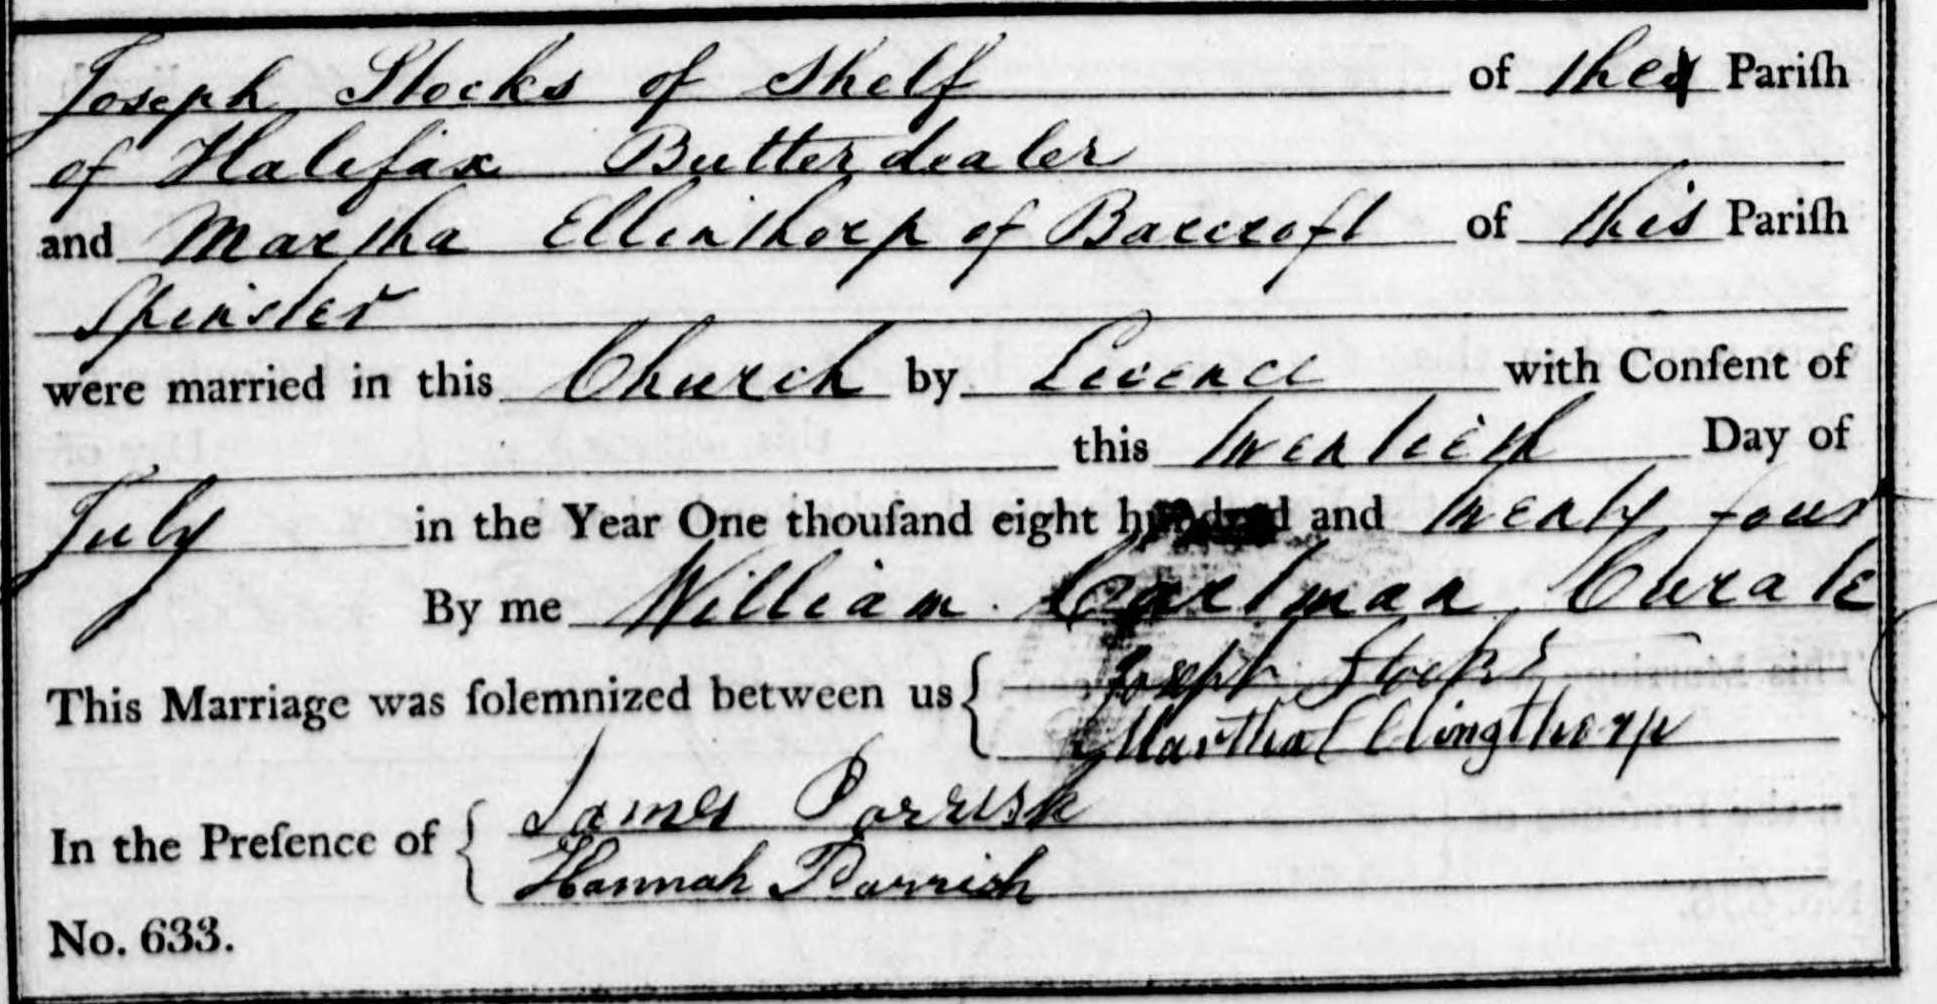 Joseph Stocks of Shelf of the Pariſh
of Halifax Butterdealer
and Martha Ellinthorp of Barcroft of this Pariſh
Spinster
were married in this Church by Licence with Conſent of
this twentieth Day of
July in the Year One thouſand eight hundred and twenty four
By me William Cartman Curate
This Marriage was ſolemnized between us { Joseph Stocks
Martha Ellingthorp
In the Preſence of { James Parrish
Hannah Parrish
No. 633.